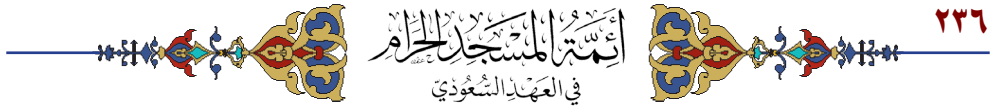 ٢٣٦
أَئِمَّةُ المَسْجِدِ الحَرَامِ
فِي العَهْدِ السُّعُودِيّ